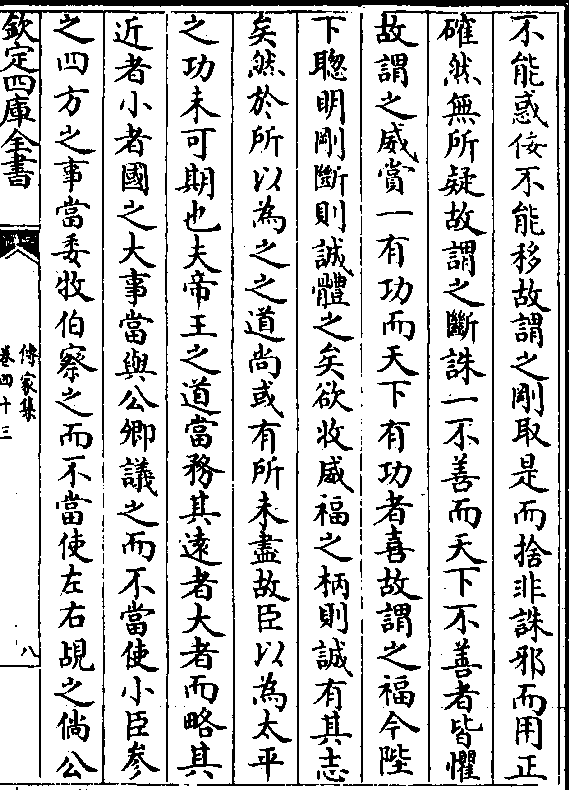 不能惑佞不能移故謂之剛取是而捨非誅邪而用正
確然無所疑故謂之斷誅一不善而天下不善者皆懼
故謂之威賞一有功而天下有功者喜故謂之福今陛
下聰明剛斷則誠體之矣欲收威福之柄則誠有其志
矣然於所以為之之道尚或有所未盡故臣以為太平
之功未可期也夫帝王之道當務其遠者大者而略其
近者小者國之大事當與公卿議之而不當使小臣參
之四方之事當委牧伯察之而不當使左右覘之倘公
欽定四庫全書
傳家集
卷四十三
八